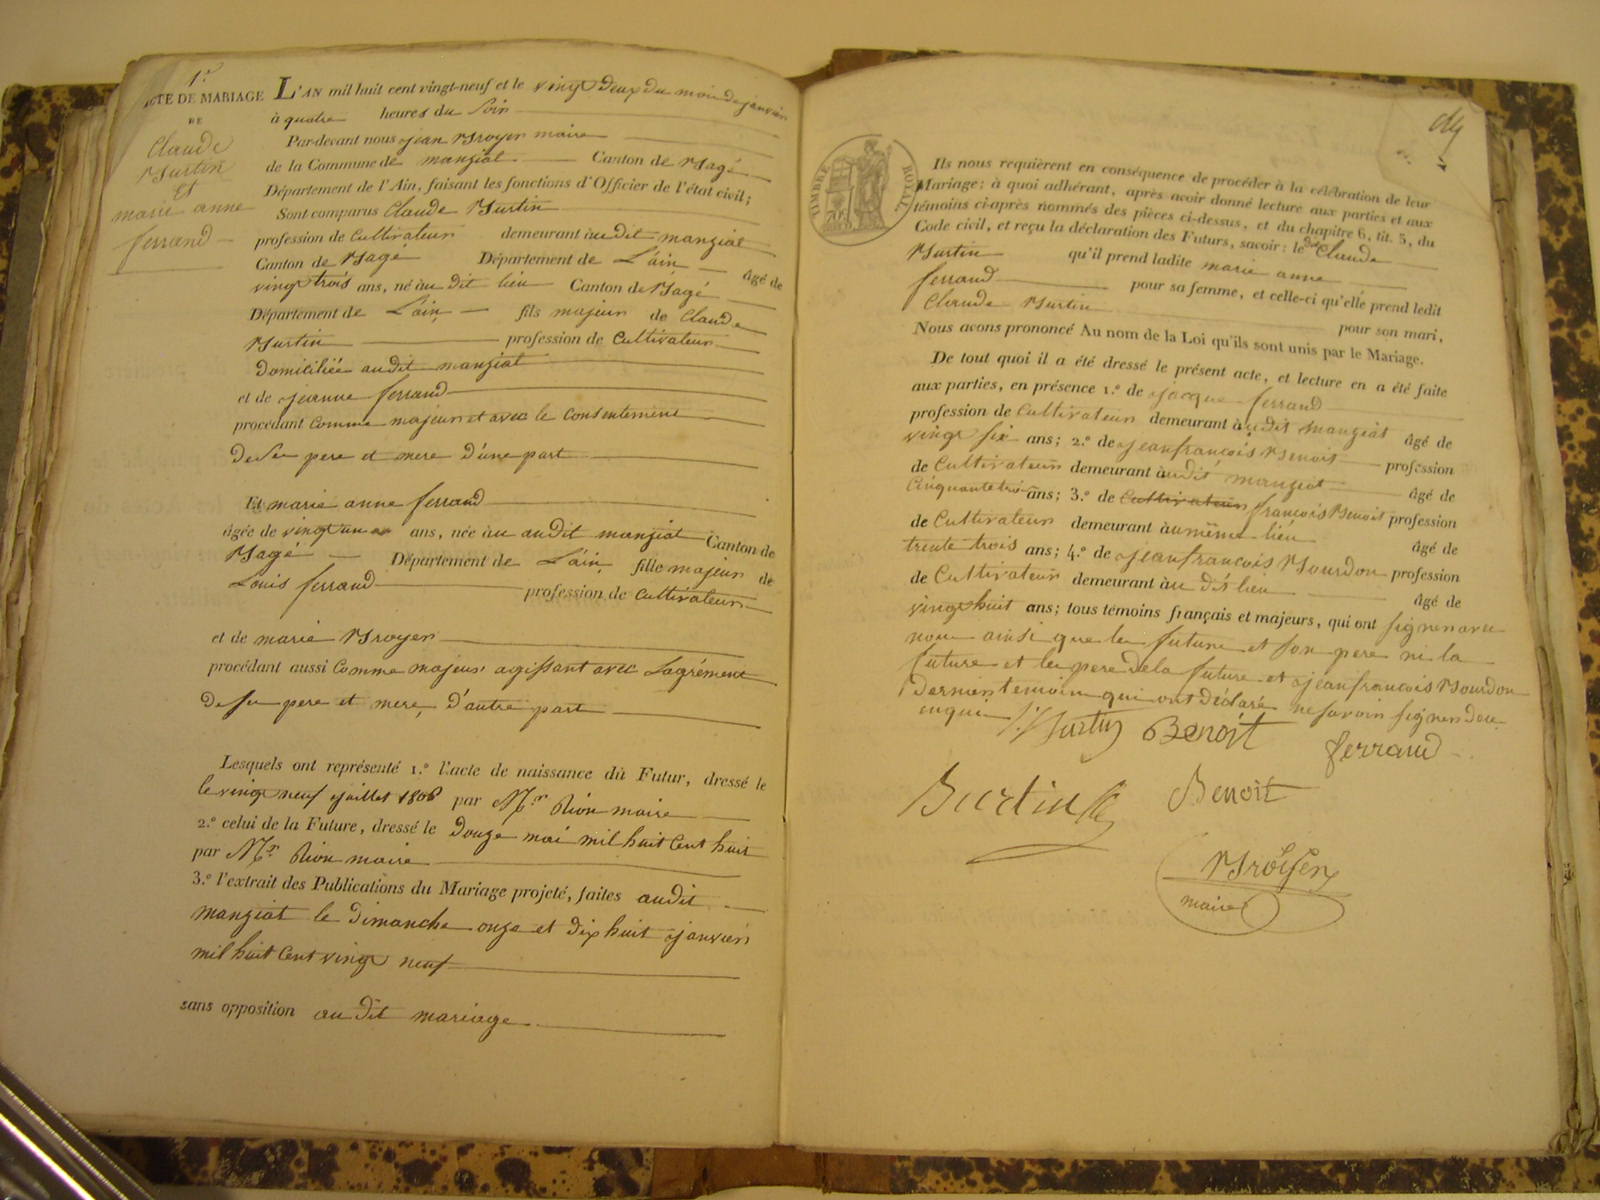 1.r
ACTE DE MARIAGE
DE
Claude
Burtin
Et
marie anne
ferrand
L'AN mil huit cent vingt-neuf et le vingt Deux du mois de janvier
à quatre heures du Soir
Par-devant nous jean Broyer maire
de la Commune de manziat Canton de Bagé
Département de l'Ain, faisant les fonctions d'Officier de l'état civil;
Sont comparus Claude Burtin
profession de Cultivateur demeurant àudit manziat
Canton de Bage Département de L'ain âgé de
vingt trois ans, né àu dit lieu Canton de Bagé
Département de L'ain fils majeur de Claude
Burtin profession de Cultivateur
Domiciliée audit manziat
et de jeanne ferrand
procédant Comme majeur et avec le Consentement
De Ses pere et mere D'une part
Et marie anne ferrand
âgée de vingt un ans, née àu audit manziat Canton de
Bagé Département de L'ain fille majeur de
Louis ferrand profession de Cultivateur
et de marie Broyer
procédant aussi Comme majeur agissant avec Lagrément
De Ses pere et mere, D'autre part
Lesquels ont représenté 1.º l'acte de naissance du Futur, dressé le
le vingt neuf juillet 1806 par M.r Rion maire
2.º celui de la Future, dressé le Douze mai mil huit Cent huit
par M.r Rion maire
3.º l'extrait des Publications du Mariage projeté, faites audit
manziat le Dimanche onze et Dix huit janvier
mil huit Cent vingt neuf
sans opposition au Dit mariage
TIMBRE ROYAL
Ils nous requièrent en conséquence de procéder à la célébration de leur
Mariage; à quoi adhérant, après avoir donné lecture aux parties et aux
témoins ci-après nommés des pièces ci-dessus, et du chapitre 6, tit. 5, du
Code civil, et reçu la déclaration des Futurs, savoir: le dit Claude
Burtin qu'il prend ladite marie anne
ferrand pour sa femme, et celle-ci qu'elle prend ledit
Claude Burtin pour son mari,
Nous avons prononcé Au nom de la Loi qu'ils sont unis par le Mariage.
De tout quoi il a été dressé le présent acte, et lecture en a été faite
aux parties, en présence 1.º de jacque ferrand
profession de Cultivateur demeurant àudit manziat âgé de
vingt six ans; 2.º de jean françois Benoit profession
de Cultivateur demeurant àudit manziat âgé de
Cinquante trois ans; 3.º de Cultivateur françois Benoit profession
de Cultivateur demeurant àu même lieu âgé de
trente trois ans; 4.º de jean françois Bourdon profession
de Cultivateur demeurant àu dit lieu âgé de
vingt huit ans; tous témoins français et majeurs, qui ont Signer avec
nous ainsi que le future et son pere ni la
future et le pere de la future et jean francois Bourdon
Dernier temoin qui ont Déclaré ne Savoir Signer de ce
enquis
Burtin Benoit ferrand
Burtin Benoit
Broyer
maire